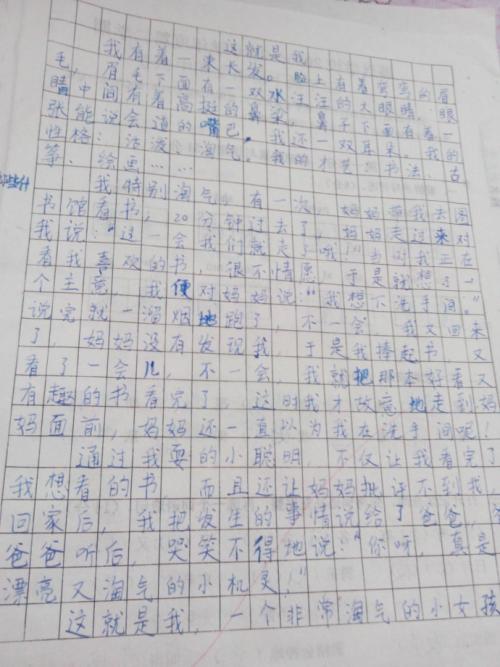 这就是我
我有着一束长发。脸上有着弯弯的眉
毛，眉毛下面有一双水汪汪的大眼睛。眼
睛中间有着高挺的鼻梁。鼻子下面有着一
张能说会道的嘴巴。我还一双耳朵。我的
性格：活泼……淘气。我的才艺：书法、古
筝、绘画……
我特别淘气，有一次，妈妈带我去图
书馆看书，20分钟过去了，妈妈走过来对
我说：“这一会我们就走了哦！”当时我正在
看我喜欢的书，很不情愿，于是就想了一
个主意，我便对妈妈说：“我想下洗手间。”
说完就一溜烟地跑了，不一会，我又回来
了，妈妈没有发现我，于是我捧起书，又
看了一会儿，不一会，我就把那本好看又
有趣的书看完了，这时我才故意地走到妈
妈面前，妈妈还一直以为我在洗手间呢！
通过我耍的小聪明，不仅让我看完了
我想看的书 而且还让妈妈批评不到我，
回家后，我把发生的事情说给了爸爸，
爸爸听后，哭笑不得地说：“你呀，真是
漂亮又淘气的小机灵！”
这就是我，一个非常淘气的小女孩